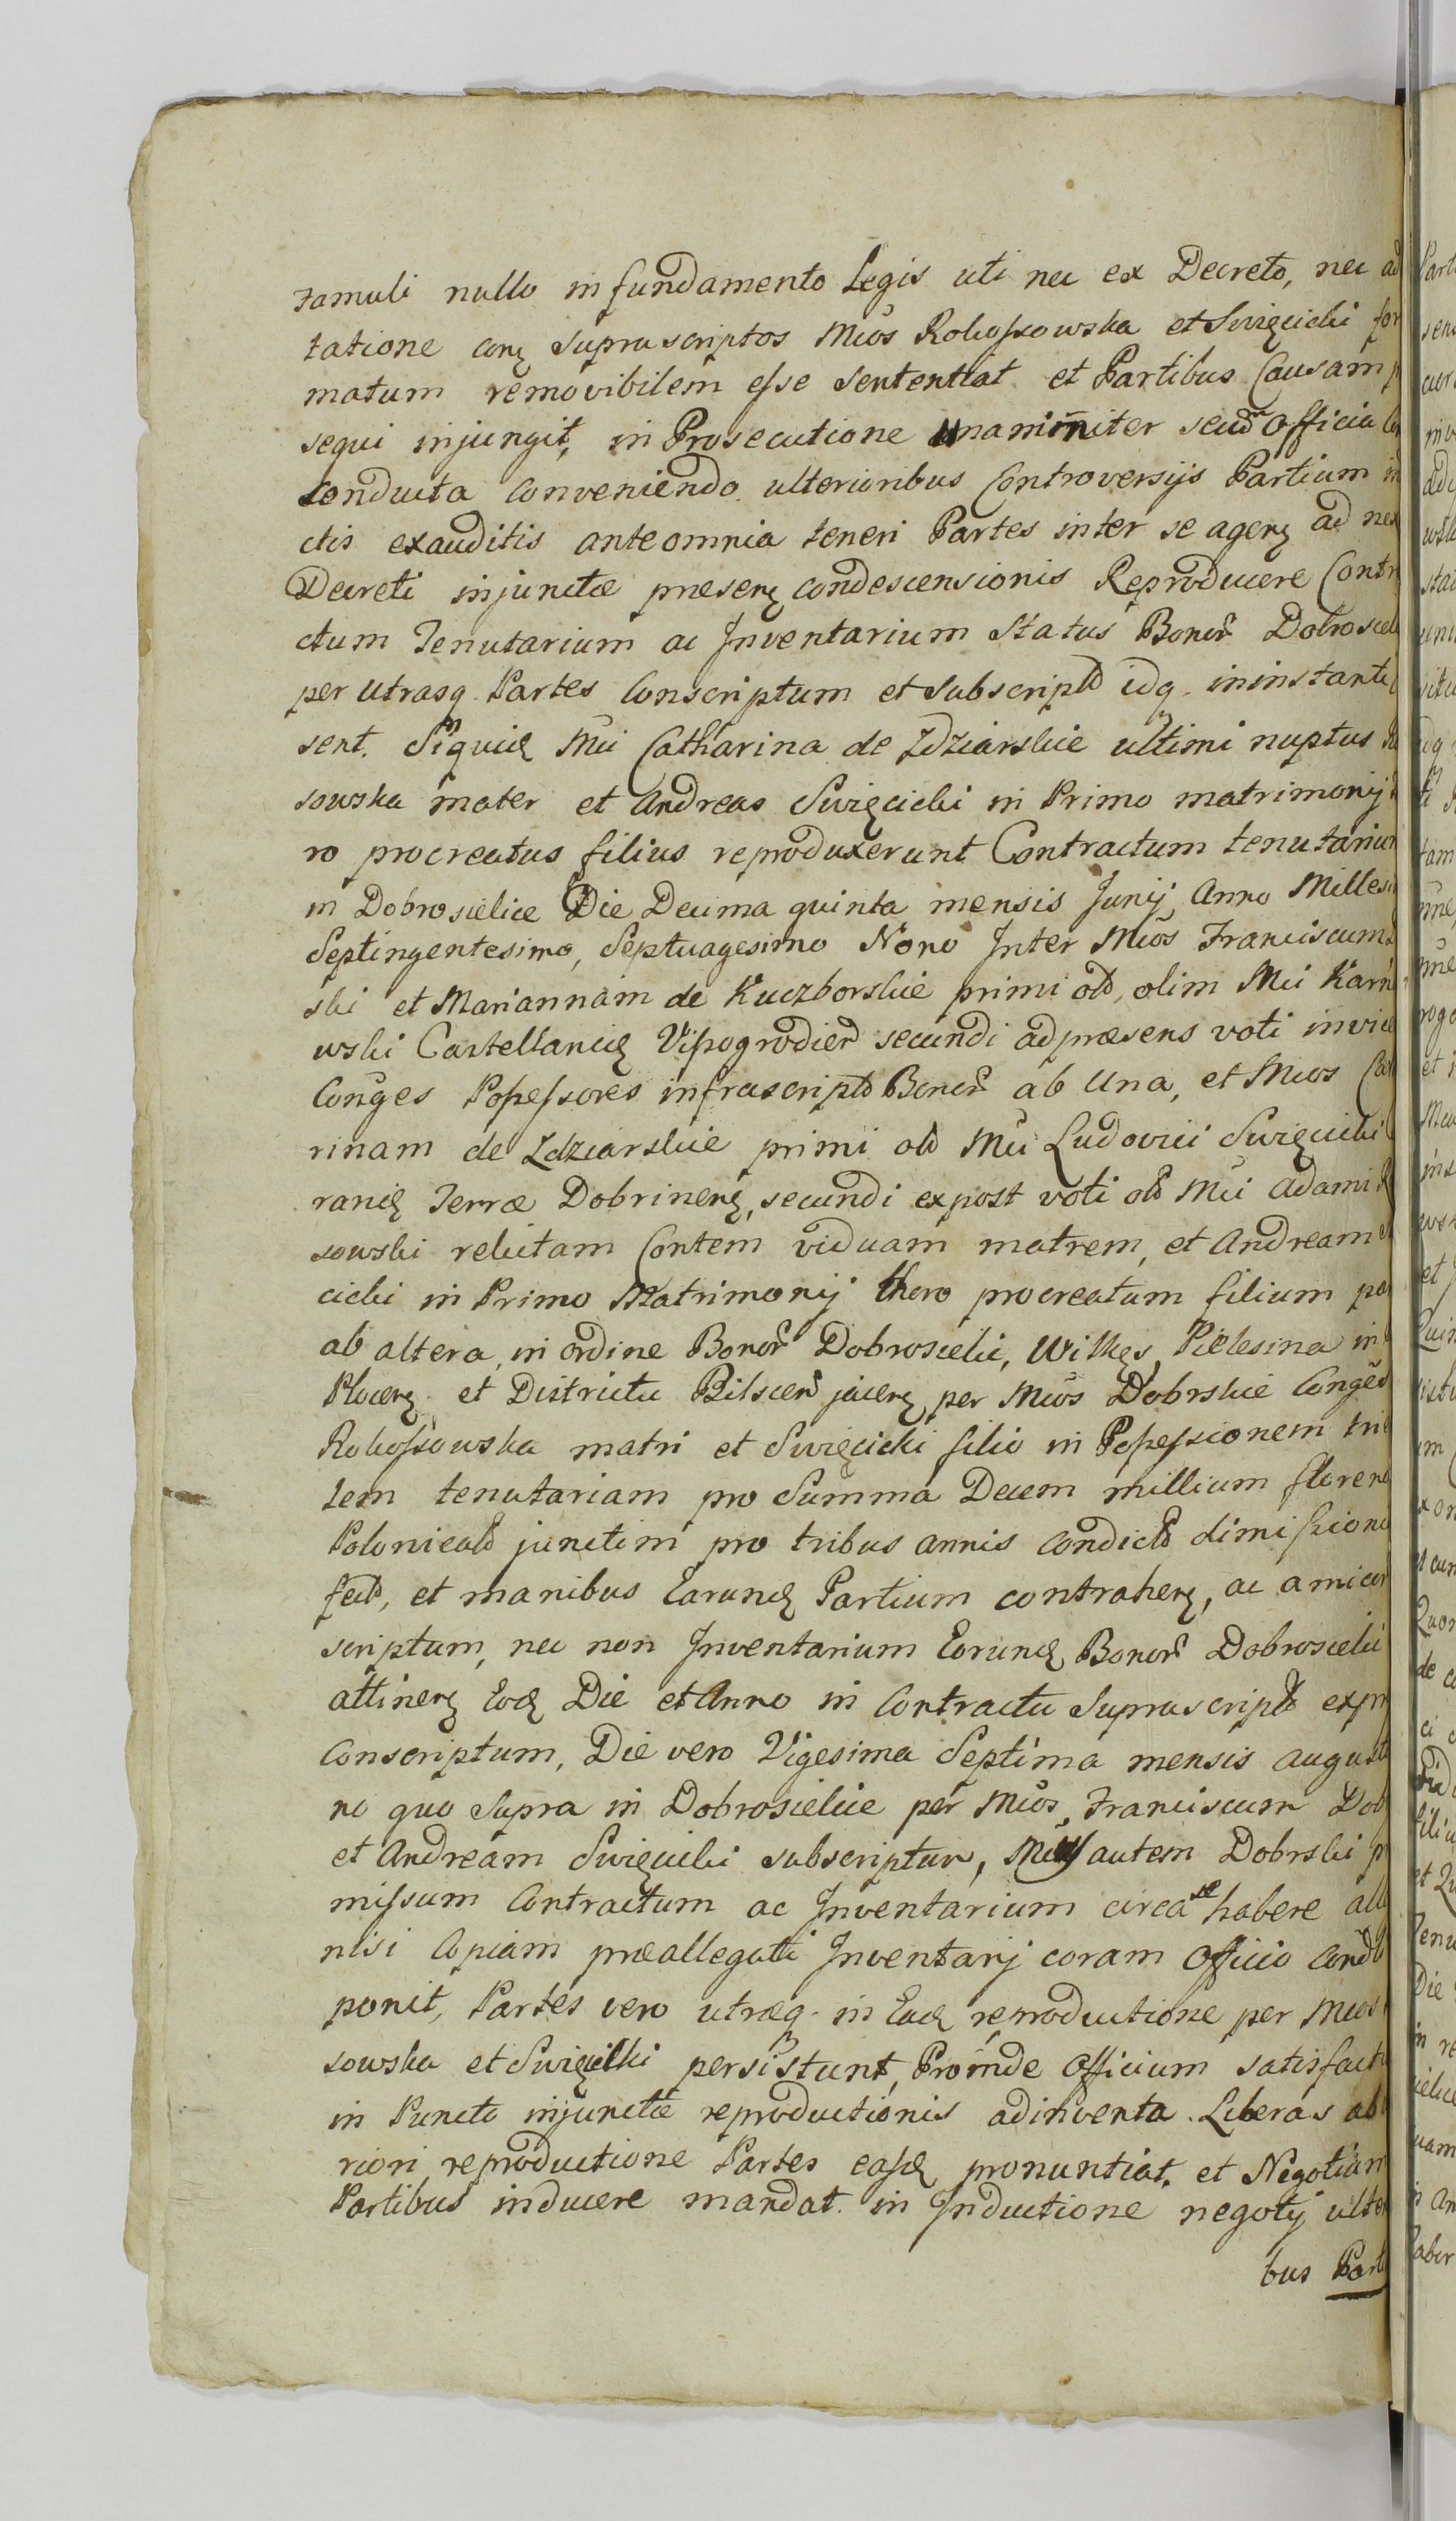 famuli nullo in fundamento Legis uti nec ex Decreto, nec ad
tatione corą Supra scriptos Mcos Rokossowska et Swięcicki for
matum removibilem esse sententiat et Partibus Causam
sequi injungit, in Prosecutione unanimiter secũd Officia
conducta conveniendo ulterioribus Controversijs Partium in
ctis exauditis ante omnia teneri Partes inter se agenę ad
Decreti injunctæ præsenę condescensionis Reproducere Contr
ctum Tenutarium ac Inventarium Status Bonor Dobrosiel
per utrasq. Partes Conscriptum et Subscriptũ idq. in instanti
sent. Siquid Mci Catharina de Zdziarskie ultimi nuptus
sowska mater et Andreas Swięcicki in Primo matrimonij
ro procreatus filius reproduxerunt Contractum tenutarium
in Dobrosielice Die Decima quinta mensis Junij Anno Millesi
Septingentesimo, Septuagesimo Nono Inter Mcos Franciscum
ski et Mariannam de Kuczborskie primi olũ, olim Mci Karn
wski Castellanid Vissogrodien secundi ad præsens voti invice
Conges Possessores infrascriptũ Bonor ab Una, et Mcos
rinam de Zdziarskie primi olũ Mci Ludovici Swięcicki
ranid Terræ Dobrinenę, secundi ex post voti olũ Mci Adami
sowski relictam Contem viduam matrem, et Andream
cicki in Primo Matrimonij thoro procreatum filium
ab altera, in ordine Bonor Dobrosielic, Wilkęs, Pielesina in
Plocenę et Districtu Bilscen jacenę per Mcos Dobrskie Conges
Rokossowska matri et Swięcicki filio in Possessionem
lem tenutariam pro Summa Decem millium floren
Polonicalũ junctim pro tribus annis condictũ dimissione
fectũ, et manibus Earund Partium contrahenę, ac amicor
scriptum, nec non Inventarium Eorund Bonor Dobrosielic
attinenę Eod Die et Anno in Contractu Suprascriptũ
Conscriptum, Die vero Vigesima Septima mensis Augusti
no quo Supra in Dobrosielice per Mcos, Franciscum Dob
et Andream Swięcicki subscriptum, autem Dobrski
missum Contractum ac Inventarium circa se habere
nisi Copiam præallegati Inventarij coram Officio Cond
ponit, Partes vero utræq. in Ead reproductione per Mcos
sowska et Swięcicki persistunt, Proinde Officium satisfact
in Puncto injunctæ reproductionis adinventa. Liberas ab
riori reproductione Partes easd pronuntiat. et Negotium
Partibus inducere mandat. in Inductione negotij ulte
bus Part